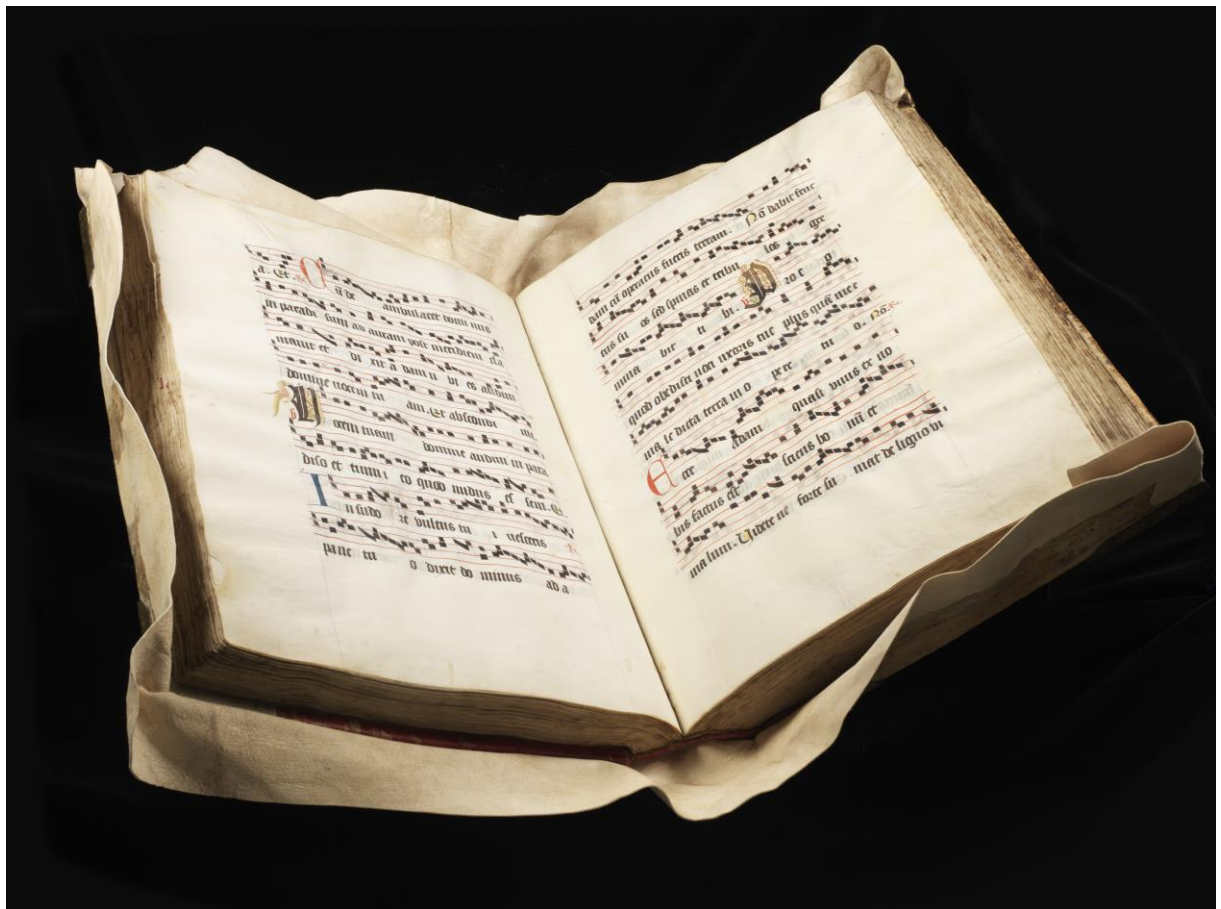 a. Et. Dū de ambularet domi nus
in paradi sum ad auram post meridiem cla
mauit et di xit a dam u bi es audiui
domine uocem tu am. Et abscondi me
Vocem tuam domine audiui in para
diso et timui eo quod nudus es sem. Et
In sudo re vultus tu i uesceris
pane tu o dixit do minus ad a
dam cū operatus fueris terram. Nō dabit fruc
tus su os sed spinas et tribu los ger
mina bit ti bi. Pro e o
quod obedisti uoci uxoris tue plus quā me
ma le dicta terra in o pere tu o. Nō.
Ecce adam quasi unus ex no
bis factus est sciens bo nū et
ma lum. Videte ne forte su mat de ligno vi